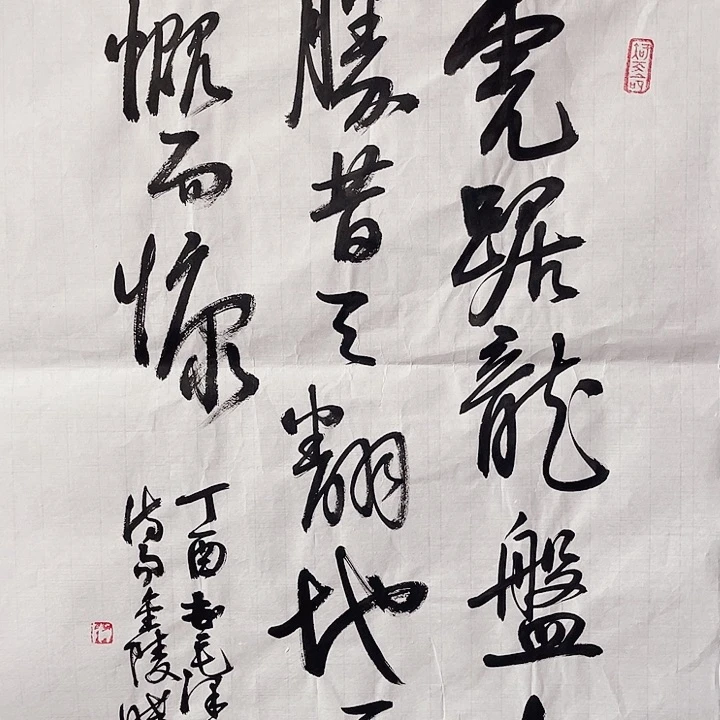 虎踞龍盤
勝昔天翻地
慨而慷
丁酉書毛澤
詩金陵